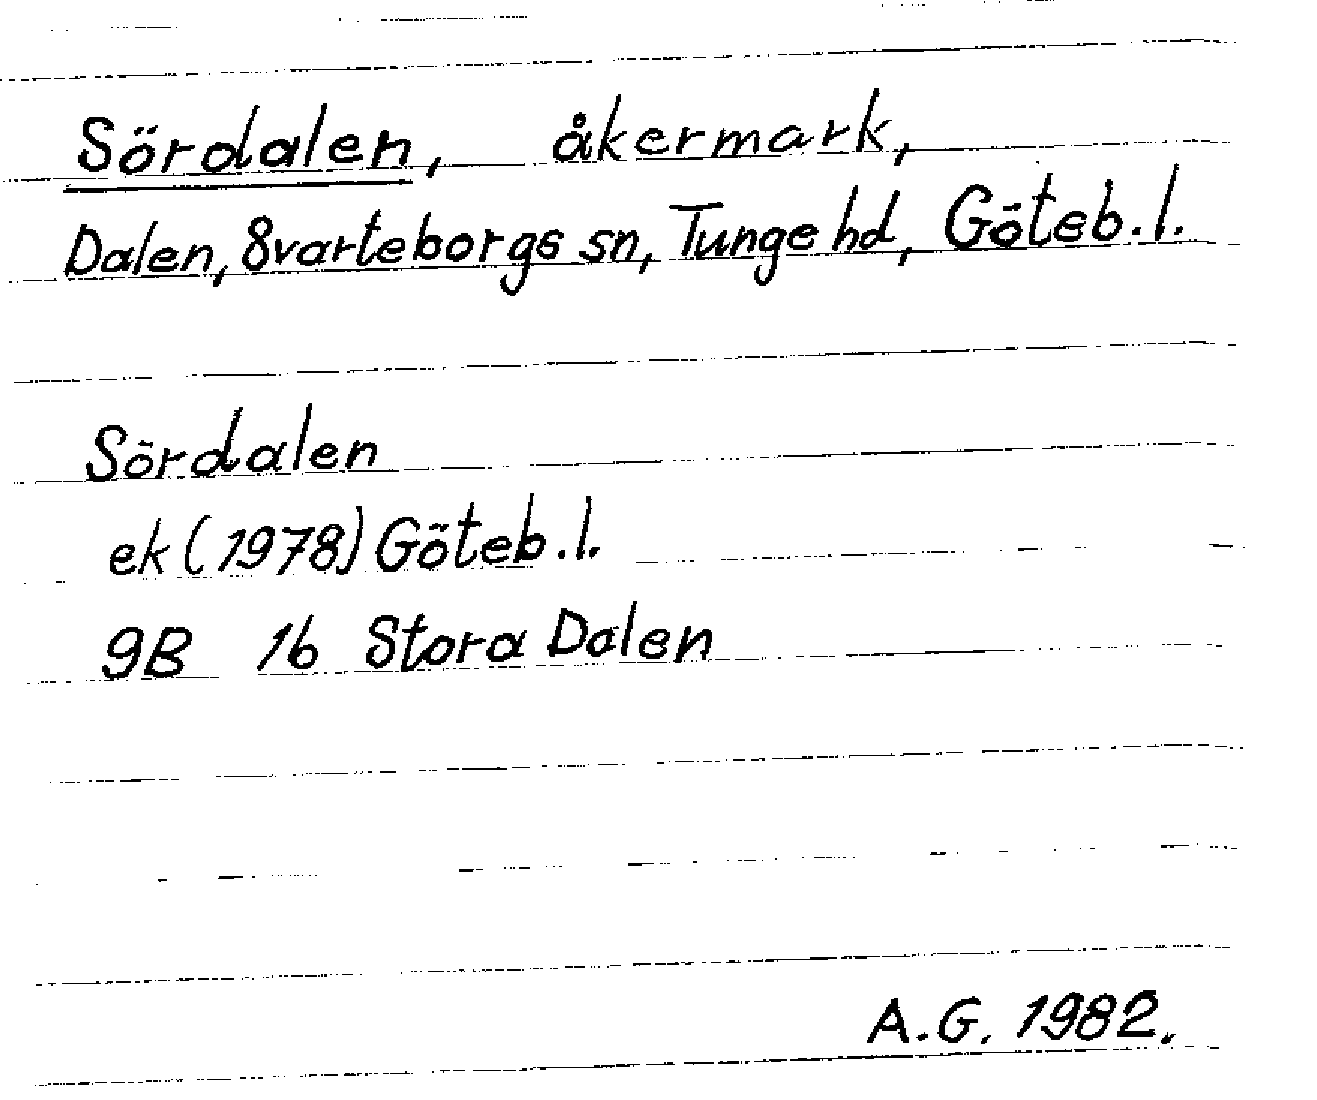 Sördalen, åkermark,
Dalen, Svarteborgs sn, Tunge hd, Göteb. l.
Sördalen
ek (1978) Göteb. l.
9B 1b Stora Dalen
A.G. 1982.